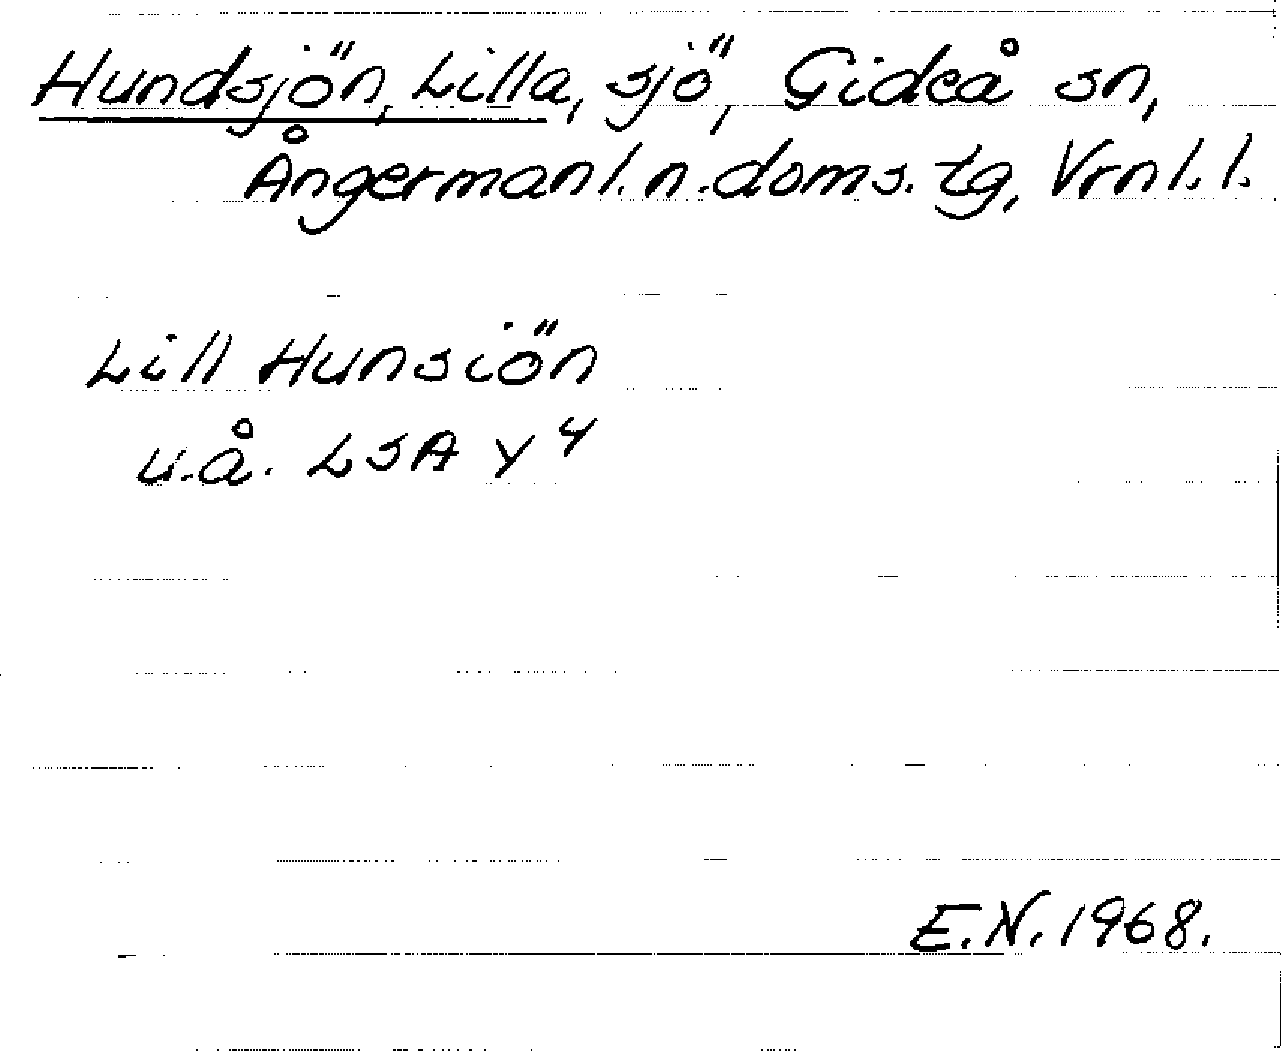 Hundsjön, Lilla, sjö, Gideå sn,
Ångermanl.n.doms.tg, Vrnl.l.
Lill Hunsiön
u.å. LSA Y 4
E.N. 1968.